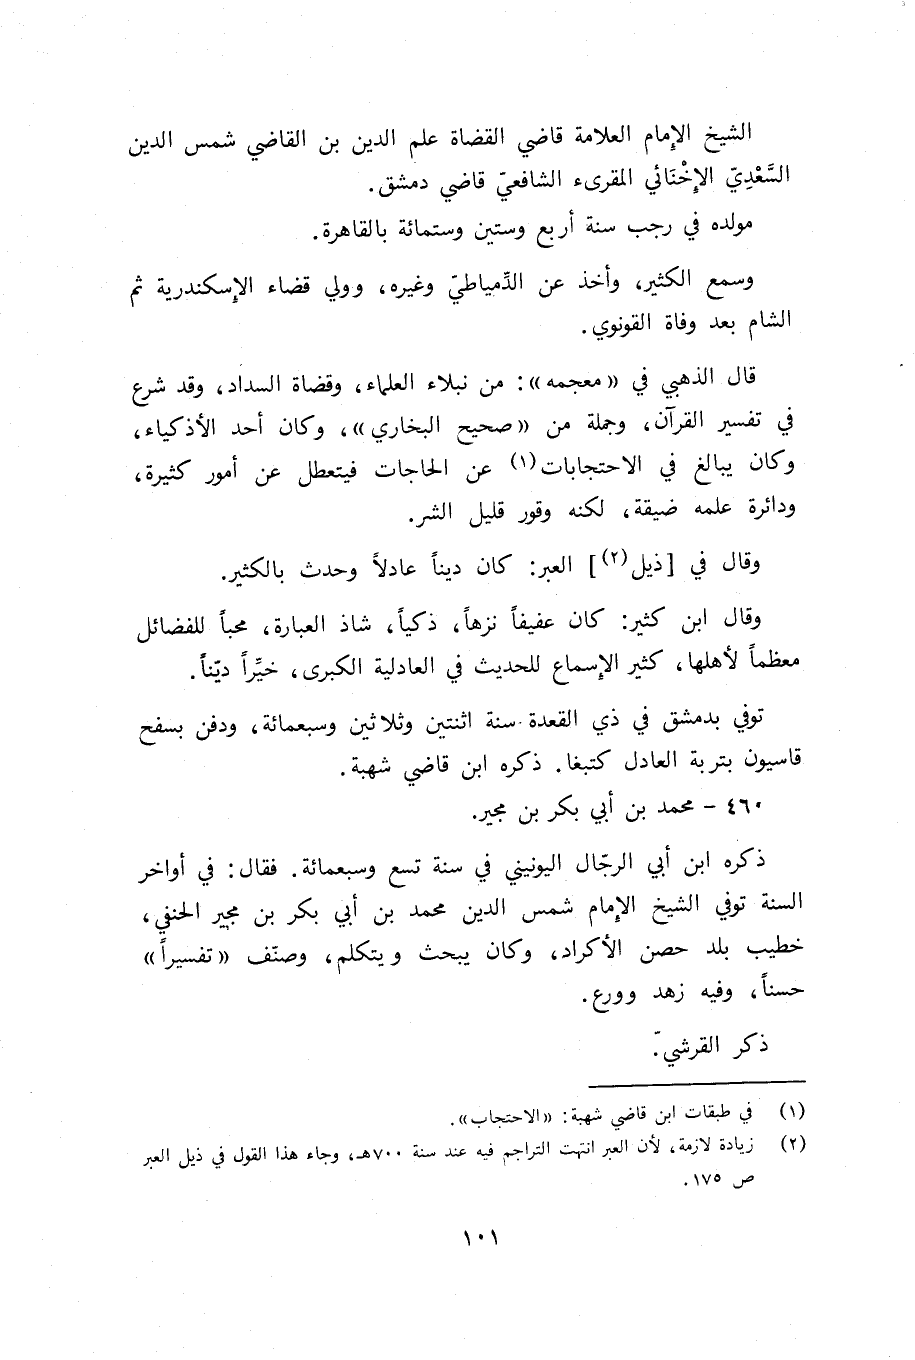 الشيخ الإمام العلامة قاضي القضاة علم الدين بن القاضي شمس الدين
السَّعْدِيّ الإخْنَائي المقرىء الشافعيّ قاضي دمشق.
مولده في رجب سنة أربع وستين وستمائة بالقاهرة.
وسمع الكثير، وأخذ عن الدِّمياطيّ وغيره، وولي قضاء الإسكندرية ثم
الشام بعد وفاة القونوي.
قال الذهبي في «معجمه»: من نبلاء العلماء، وقضاة السداد، وقد شرع
في تفسير القرآن، وجملة من «صحيح البخاري»، وكان أحد الأذكياء،
وكان يبالغ في الاحتجابات(١) عن الحاجات فيتعطل عن أمور كثيرة،
ودائرة علمه ضيقة، لكنه وقور قليل الشر.
وقال في [ذيل(٢)] العبر: كان ديناً عادلاً وحدث بالكثير.
وقال ابن كثير: كان عفيفاً نزهاً، ذكياً، شاذ العبارة، محباً للفضائل
معظماً لأهلها، كثير الإسماع للحديث في العادلية الكبرى، خيِّراً ديّناً.
توفي بدمشق في ذي القعدة سنة اثنتين وثلاثين وسبعمائة، ودفن بسفح
قاسيون بتربة العادل كتبغا. ذكره ابن قاضي شهبة.
٤٦٠ - محمد بن أبي بكر بن مجير.
ذكره ابن أبي الرجّال اليونيني في سنة تسع وسبعمائة. فقال: في أواخر
السنة توفي الشيخ الإمام شمس الدين محمد بن أبي بكر بن مجير الحنفي،
خطيب بلد حصن الأكراد، وكان يبحث ويتكلم، وصنّف «تفسيراً»
حسناً، وفيه زهد وورع.
ذكر القرشيّ.
(١) في طبقات ابن قاضي شهبة: «الاحتجاب».
(٢) زيادة لازمة، لأن العبر انتهت التراجم فيه عند سنة ٧٠٠هـ، وجاء هذا القول في ذيل العبر
ص ١٧٥.
١٠١